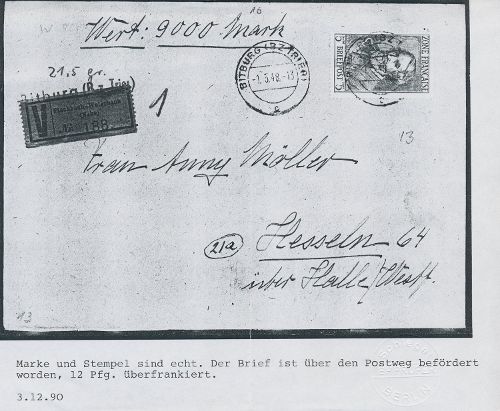 16
Wert: 9000 Mark
21,5 gr.
Bitburg (Bz. Trier)
V
188
1
BITBURG (BZ. TRIER)
-1.3.48.-13
ZONE FRANÇAISE
BRIEFPOST
13
Frau Anny Möller
21a
Hesseln 64
über Halle/Westf.
13
Marke und Stempel sind echt. Der Brief ist über den Postweg befördert
worden, 12 Pfg. überfrankiert.
3.12.90